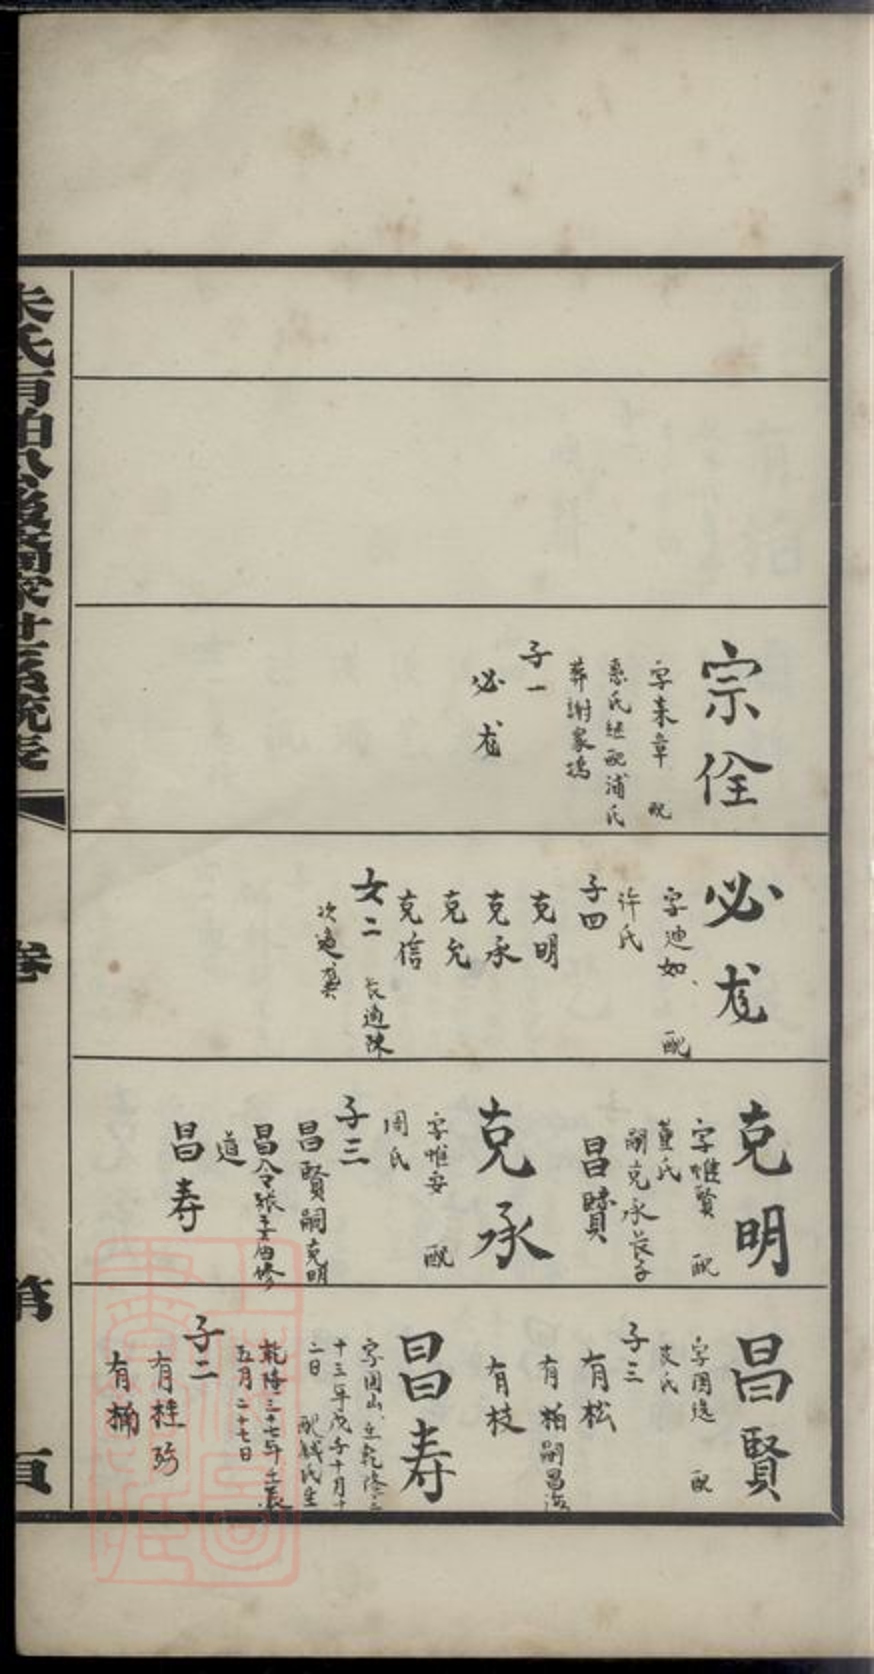 宗佺
字来章 配
惠氏继配浦氏
葬謝家塢
子一
必龙
必龙
字迪如 配
许氏
子四
克明
克承
克允
克信
女二 长適陳
次適龔
克明
字惟賢 配
董氏
嗣克承长子
昌賢
克承
字惟安 配
周氏
子三
昌賢嗣克明
昌令張
道
昌寿
昌賢
配
氏
子三
有松
有柏嗣昌
有枝
昌寿
山 生乾隆三
十三年戊子十月十
二日 配錢氏生
乾隆三十七年壬辰
五月二十七日
子二
有桂
有楠
卷
第
頁